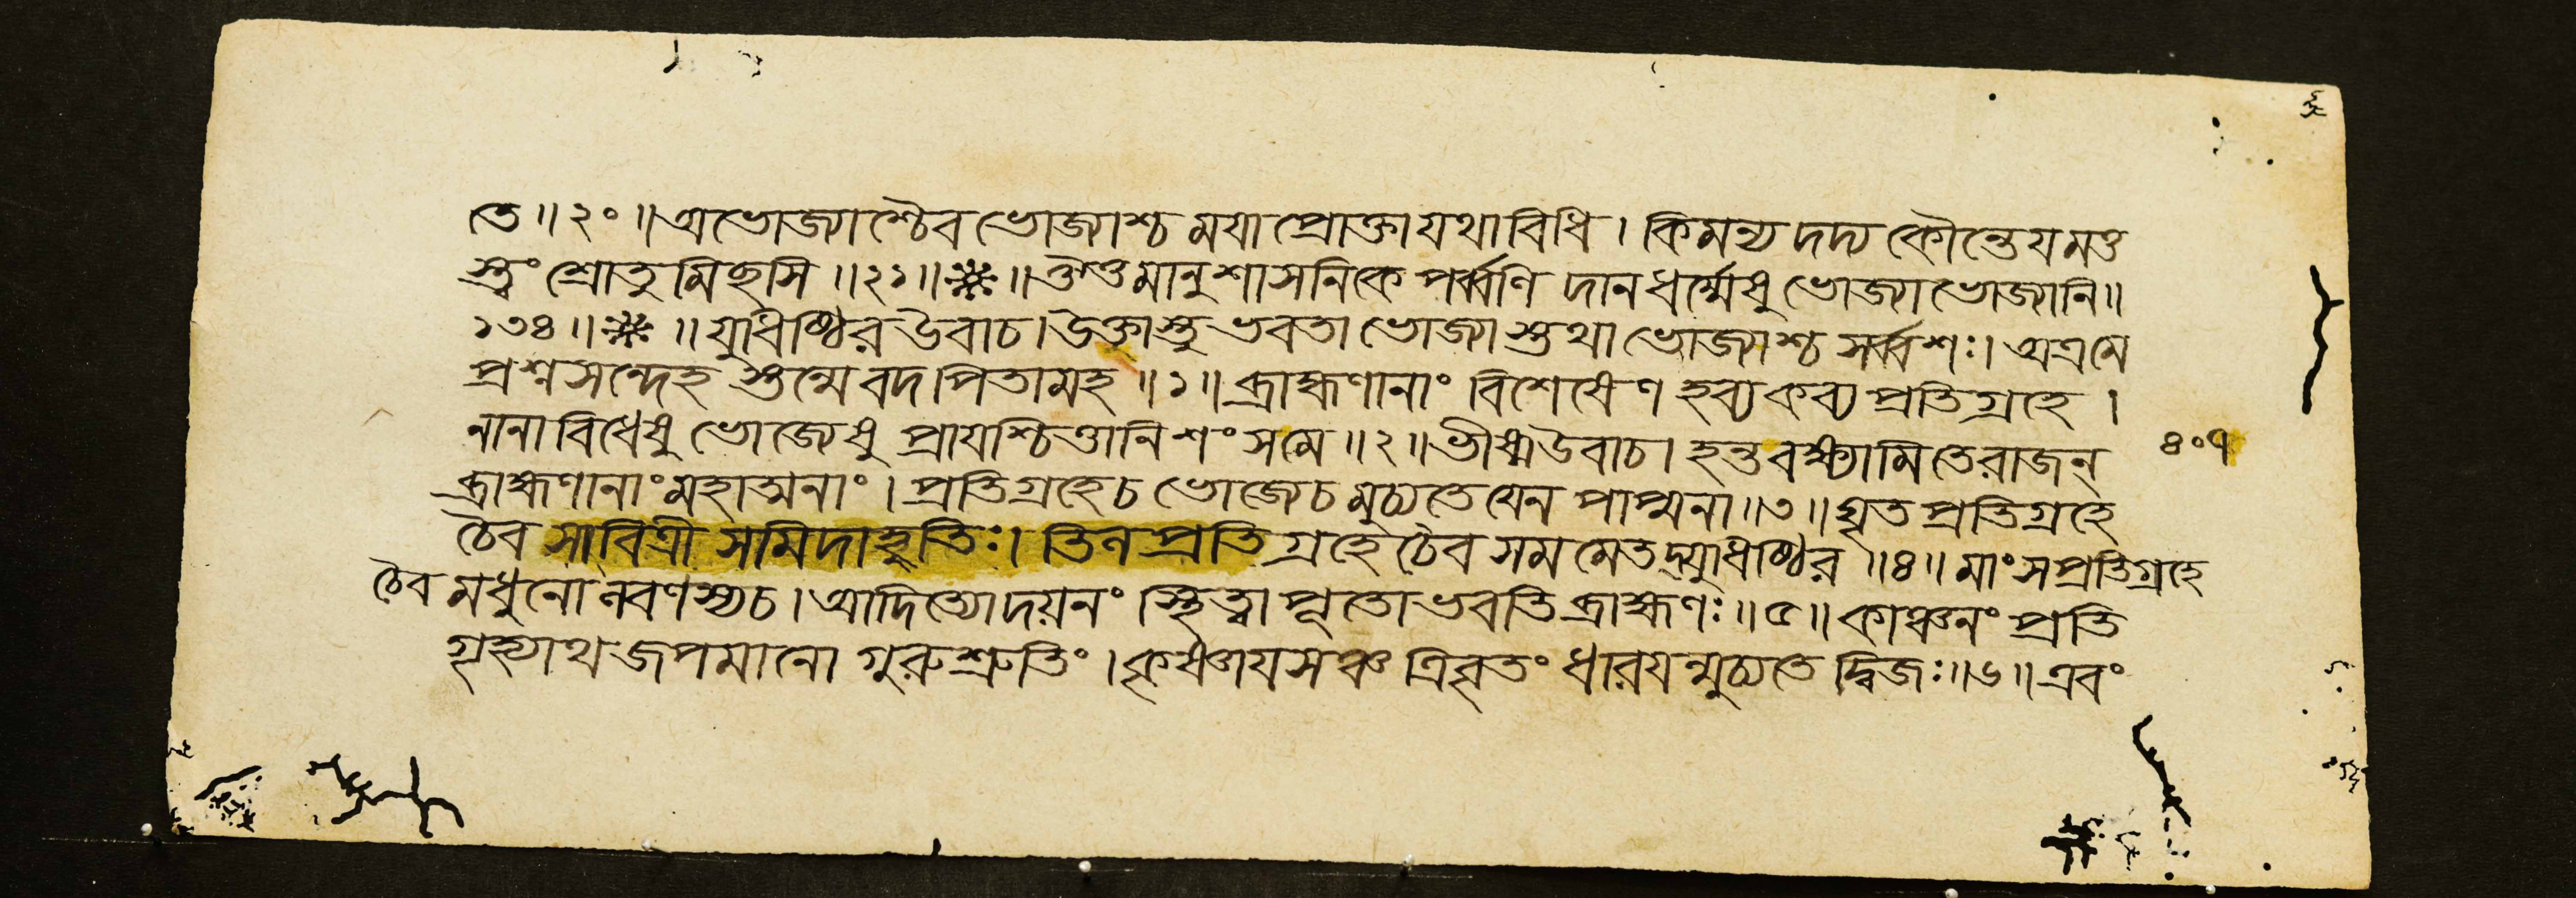 তে ॥ ২০ ॥ অভোজ্যাশ্চৈব ভোজ্যাশ্চ ময়া প্রোক্তা যথাবিধি । কিমন্যদদ্য কৌন্তেয় মত্ত
স্ত্বং শ্রোতুমিছসি ॥ ২১ ॥ ❋ ॥ ঔওমানুশাসনিকে পর্ব্বণি দানধর্ম্মেষু ভোজ্যাভোজ্যানি ॥
১৩৪ ॥ ❋ ॥ যুধিষ্ঠির উবাচ । উক্তাস্তু ভবতা ভোজ্যাস্তথাভোজ্যাশ্চ সর্ব্বশঃ । অত্র মে
প্রশ্নসন্দেহস্তন্মে বদ পিতামহ ॥ ১ ॥ ব্রাহ্মণানাং বিশেষেণ হব্যকব্যপ্রতিগ্রহে ।
নানাবিধেষু ভোজ্যেষু প্রায়শ্চিত্তানি শংস মে ॥ ২ ॥ ভীষ্ম উবাচ । হন্ত বক্ষ্যামি তে রাজন্
৪০৭
ব্রাহ্মণানাং মহাত্মনাং । প্রতিগ্রহে চ ভোজ্যে চ মুচ্যতে যেন পাপ্মনা ॥ ৩ ॥ ঘৃতপ্রতিগ্রহে
চৈব সাবিত্রী সমিদাহুতিঃ । তিলপ্রতিগ্রহে চৈব সমমেতদ্যুধিষ্ঠির ॥ ৪ ॥ মাংসপ্রতিগ্রহে
চৈব মধুনো লবণস্য চ । আদিত্যোদয়নং স্থিত্বা পূতো ভবতি ব্রাহ্মণঃ ॥ ৫ ॥ কাঞ্চনং প্রতি
গৃহ্যাথ জপমানো গুরুশ্রুতিং । কৃষ্ণায়সঞ্চ ত্রিবৃতং ধারয়ন্মুচ্যতে দ্বিজঃ ॥ ৬ ॥ এবং